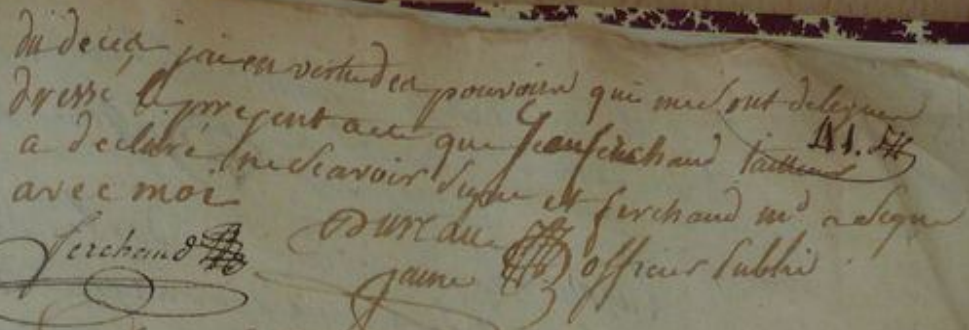 du deces j'ai en vertu des pouvoirs qui me sont delegues
dressé le present acte que Jean ferchaud tailleur
41.
a declaré ne scavoir signer et ferchaud md a signe
avec moi
ferchaud
Dureau
jaune officier public